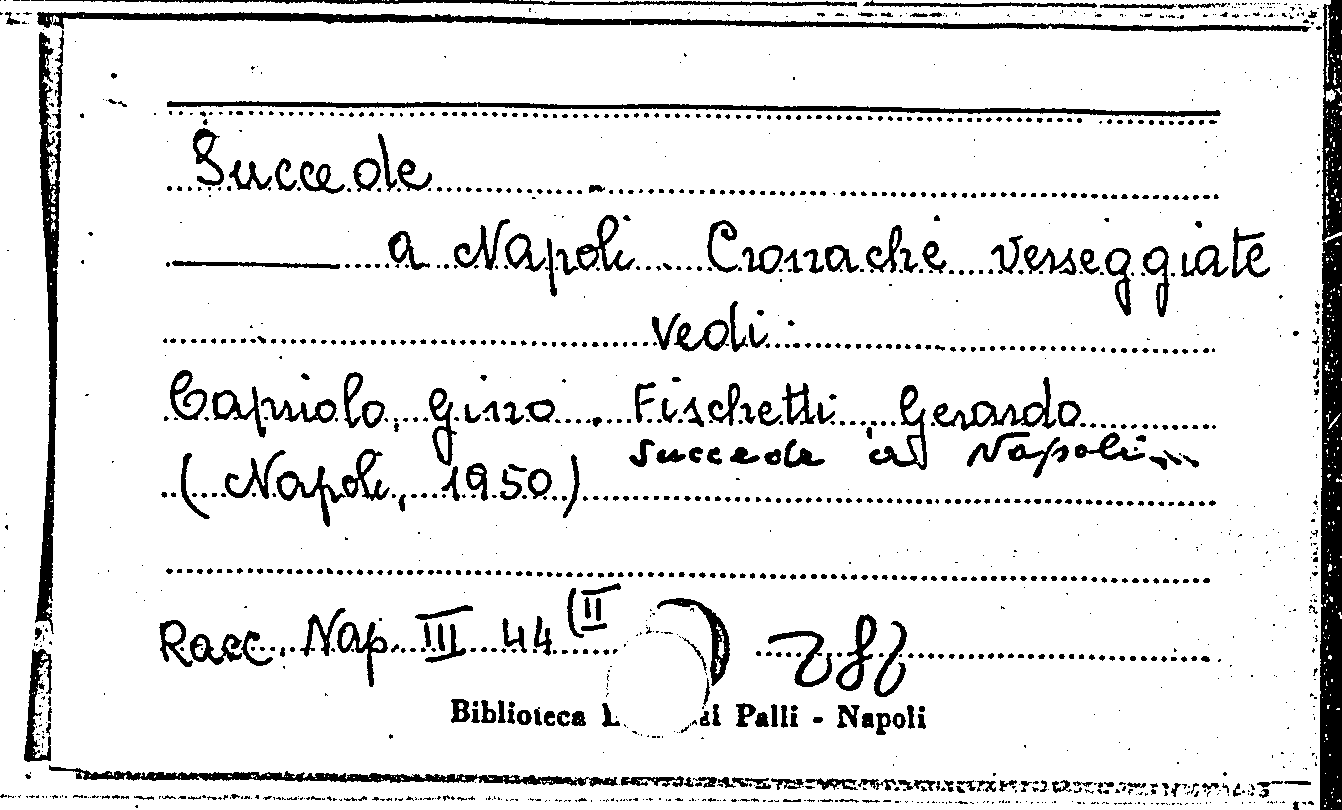 Succede
a Napoli. Cronache verseggiate
vedi:
Capriolo, Gino. Fischetti, Gerardo
Succede a Napoli...
(Napoli, 1950)
Racc. Nap. III 44 (II
Biblioteca Palli - Napoli